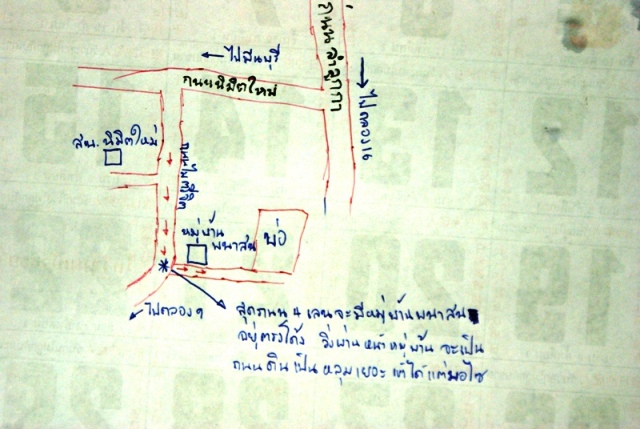 ← ไปมีนบุรี
ถนนลำลูกกา
ถนนนิมิตใหม่
ไปคลอง16
สน.นิมิตใหม่
หมู่บ้าน
พนาสน
บ่อ
ไปคลอง 9
สุดถนน 4 เลนจะมีหมู่บ้านพนาสน
อยู่ตรงโค้ง วิ่งผ่านหน้าหมู่บ้าน จะเป็น
ถนนดินเป็นหลุมเยอะ